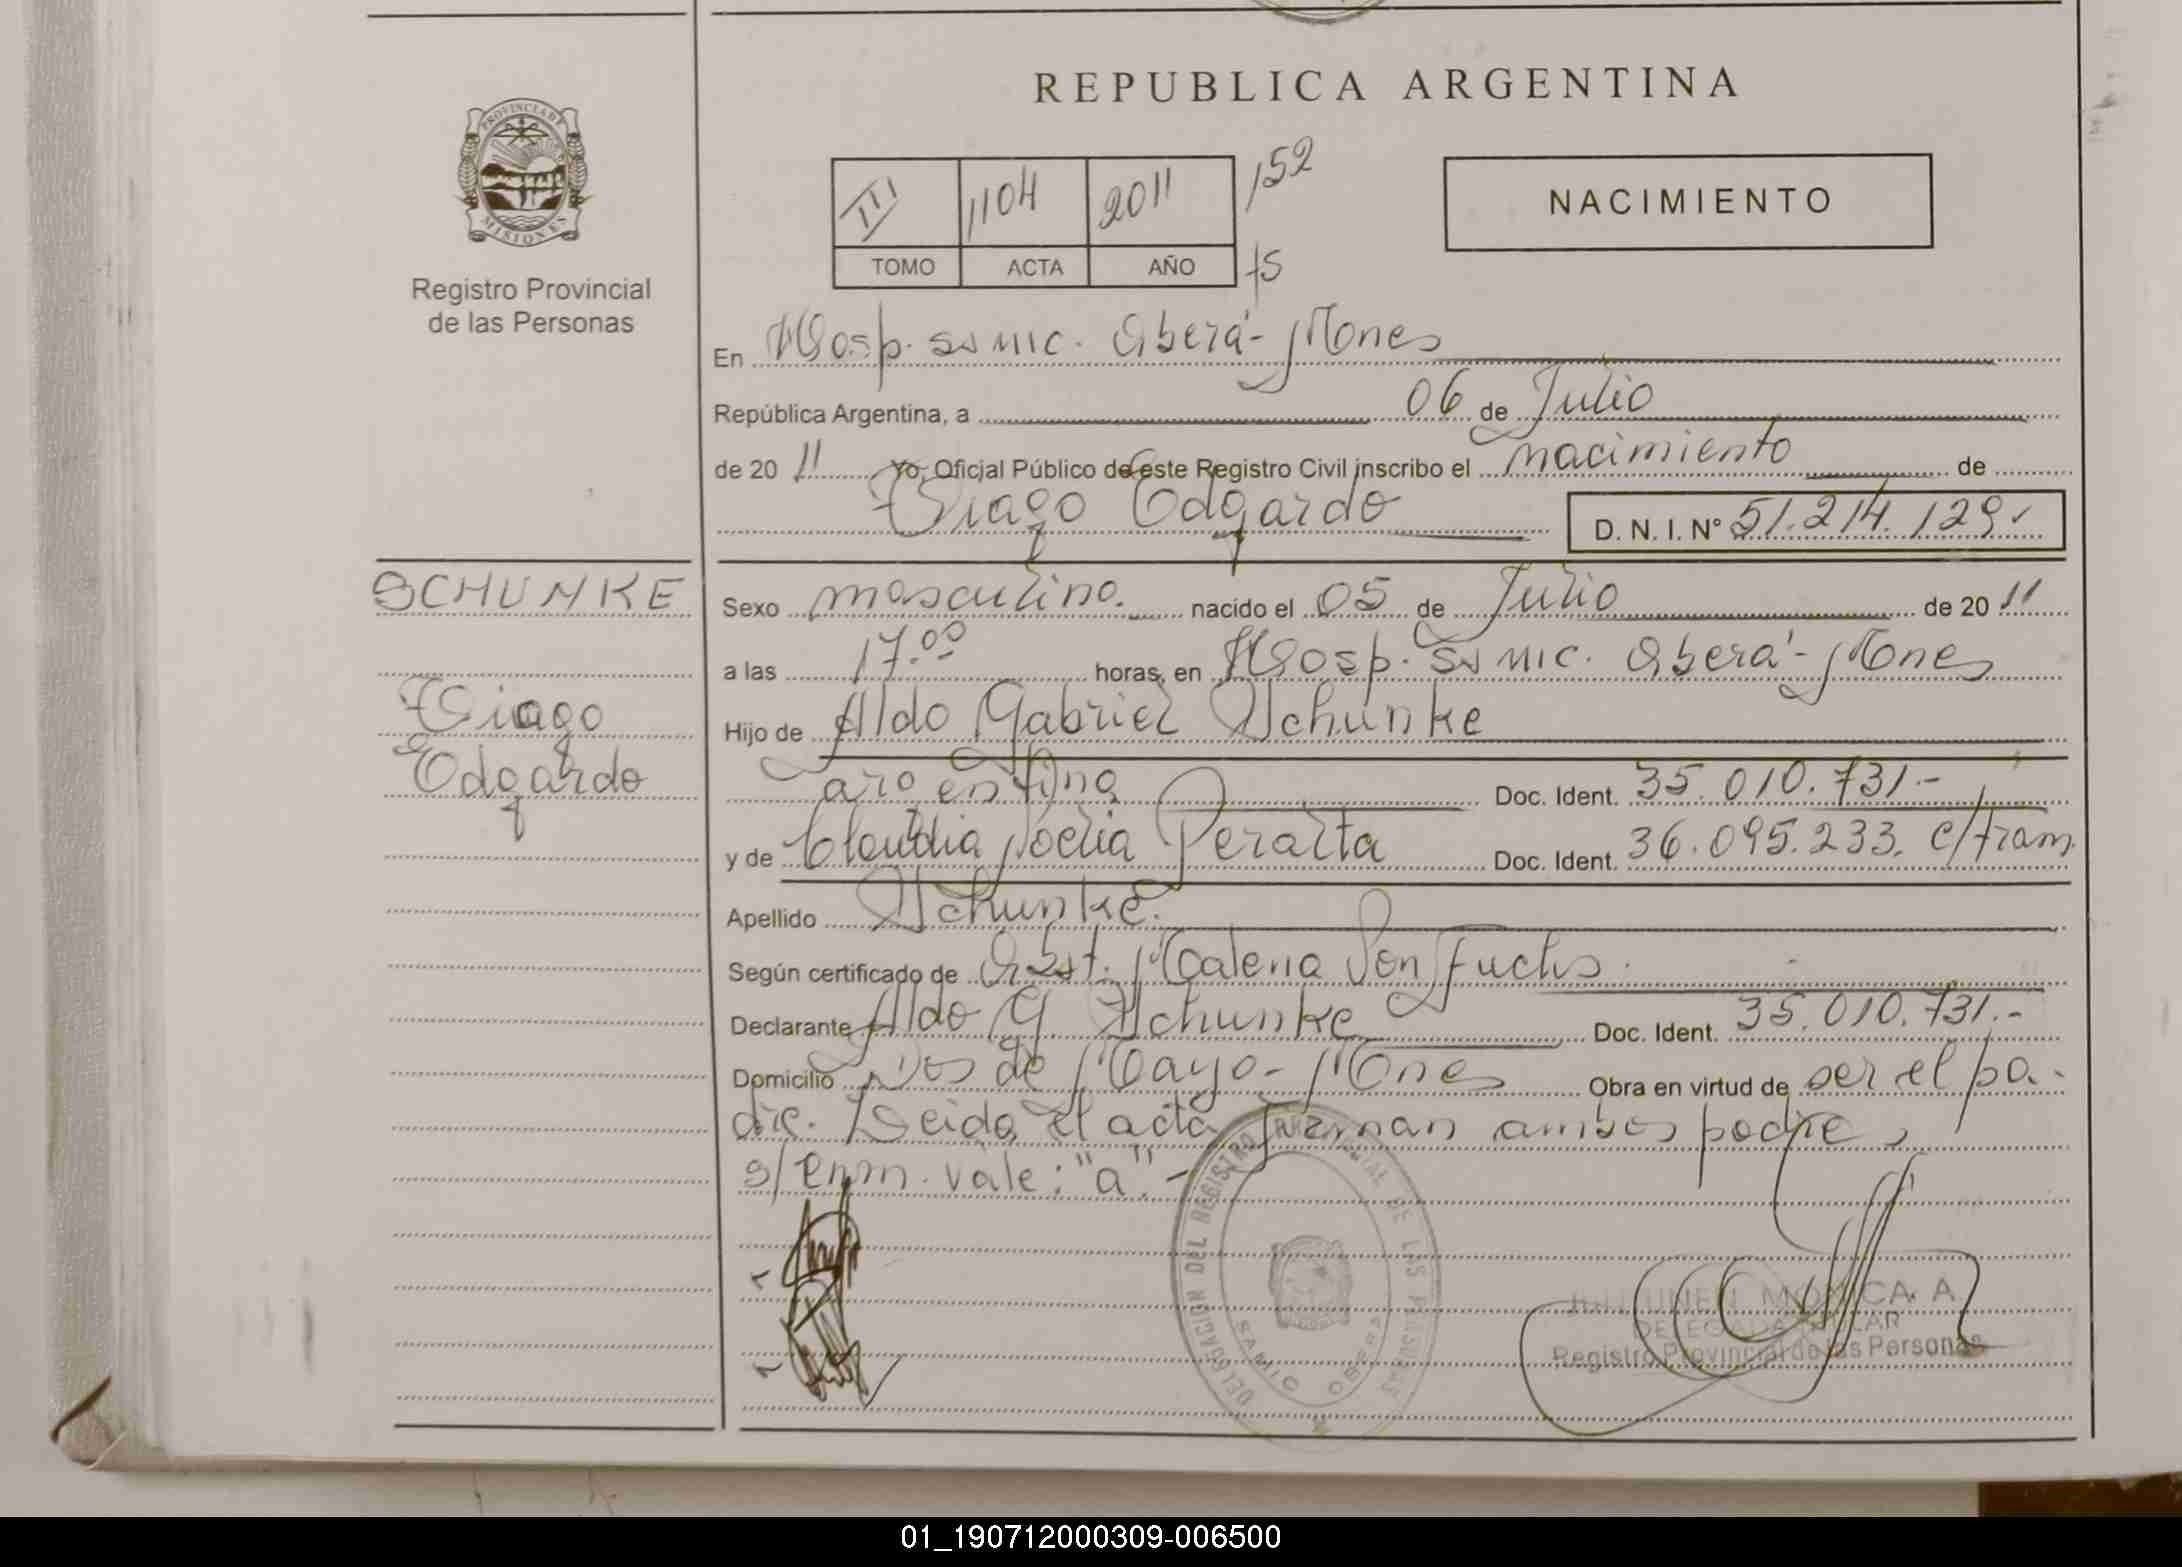 REPUBLICA ARGENTINA
PROVINCIA DE MISIONES
Registro Provincial
de las Personas
III 1104 2011 152
TOMO ACTA AÑO
NACIMIENTO
En Hosp. SS mic. Oberá - Mones
República Argentina, a 06 de Julio
de 20 11 Yo, Oficial Público de este Registro Civil inscribo el nacimiento de
Tiago Edgardo D. N. I. Nº 51.214.129.
SCHUNKE
Tiago
Edgardo
Sexo masculino. nacido el 05 de Julio de 20 11
a las 17.00 horas, en Hosp. SS mic. Oberá - Mones
Hijo de Aldo Gabriel Schunke
argentina Doc. Ident. 35.010.731.-
y de Claudia Noelia Peralta Doc. Ident. 36.095.233. c/tram.
Apellido Schunke.
Según certificado de Obst. Malena Von Fuchs.
Declarante Aldo G Schunke Doc. Ident. 35.010.731.-
Domicilio Dos de Mayo - Mones Obra en virtud de ser el pa-
dre. Leida el acta firman ambos padres,
s/enm. vale: "a".-
DELEGACION DEL REGISTRO PROVINCIAL DE LAS PERSONAS
OBERA
MONICA A.
Registro Provincial de las Personas
01_190712000309-006500